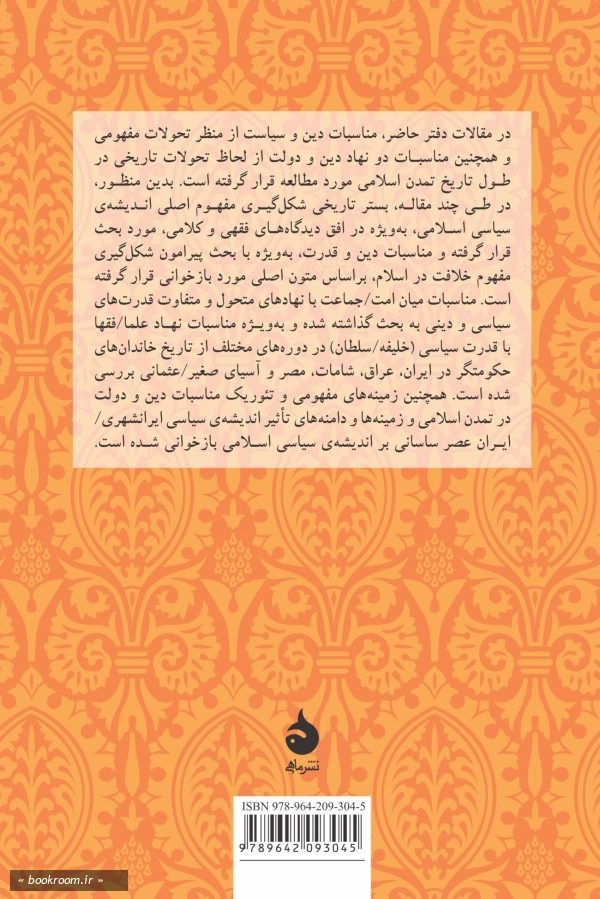 در مقالات دفتر حاضر، مناسبات دین و سیاست از منظر تحولات مفهومی
و همچنین مناسبات دو نهاد دین و دولت از لحاظ تحولات تاریخی در
طول تاریخ تمدن اسلامی مورد مطالعه قرار گرفته است. بدین منظور،
در طی چند مقاله، بستر تاریخی شکل‌گیری مفهوم اصلی اندیشه‌ی
سیاسی اسلامی، به‌ویژه در افق دیدگاه‌های فقهی و کلامی، مورد بحث
قرار گرفته و مناسبات دین و قدرت، به‌ویژه با بحث پیرامون شکل‌گیری
مفهوم خلافت در اسلام، براساس متون اصلی مورد بازخوانی قرار گرفته
است. مناسبات میان امت/جماعت با نهادهای متحول و متفاوت قدرت‌های
سیاسی و دینی به بحث گذاشته شده و به‌ویژه مناسبات نهاد علما/فقها
با قدرت سیاسی (خلیفه/سلطان) در دوره‌های مختلف از تاریخ خاندان‌های
حکومتگر در ایران، عراق، شامات، مصر و آسیای صغیر/عثمانی بررسی
شده است. همچنین زمینه‌های مفهومی و تئوریک مناسبات دین و دولت
در تمدن اسلامی و زمینه‌ها و دامنه‌های تأثیر اندیشه‌ی سیاسی ایرانشهری/
ایران عصر ساسانی بر اندیشه‌ی سیاسی اسلامی بازخوانی شده است.
نشرماهی
ISBN 978-964-209-304-5
9789642093045
« bookroom.ir »